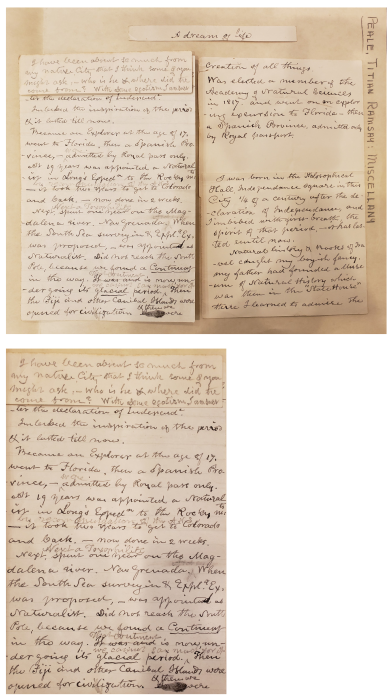 A dream of life
I have been about so much from
my native City, that I think some of you
might ask — who is he & where did he
come from? With some egotism I answer
for the declaration of Independt
Imbibed the inspiration of the period
& it lasted till now.
Became an Explorer at the age of 17.
went to Florida, then a Spanish Pro
vince, — admitted by Royal pass only.
At 19 years was appointed a Natural
ist in Long's Expedn to the Rocky
— it took two years to get to Colorado
and back. — now done in 2 weeks.
Next, spent one year on the Mag-
dalena river. New Grenada. When
the South Sea survey in & Explg Ex.
was proposed, — was appointed as
Naturalist. Did not reach the South
Pole, because we found a Continent
in the way. It was and is now un-
dergoing its glacial period. Then
the Fiji and other Canibal Islands were
opened for civilization
Creation of all things.
Was elected a member of the
Academy of Natural Sciences
in 1817. and went on an explor
ing excursion to Florida — then
a Spanish Province admitted only
by Royal passport.
I was born in the Philosophical
Hall Independence Square — this
City 1/4 of a century after the de-
claration of Independence, and
imbibed with your breath the
spirit of that period, — it has las
ted until now.
Natural history & books of
caught my boyish fancy.
my father had founded a Muse
um of Natural History which
was then in the "State House"
there I learned to admire the
PEALE, TITIAN RAMSAY: MISCELLANY
I have been about so much from
my native City, that I think some of you
might ask — who is he & where did he
come from? With some egotism I answer
for the declaration of Independt
Imbibed the inspiration of the period
& it lasted till now.
Became an Explorer at the age of 17.
went to Florida, then a Spanish Pro
vince, — admitted by Royal pass only.
At 19 years was appointed a Natural
ist in Long's Expedn to the Rocky mts
— it took two years to get to Colorado
and back. — now done in 2 weeks.
Next, spent one year on the Mag-
dalena river. New Grenada. When
the South Sea survey in & Explg Ex.
was proposed, — was appointed as
Naturalist. Did not reach the South
Pole, because we found a Continent
in the way. It was and is now un-
dergoing its glacial period. Then
the Fiji and other Canibal Islands were
opened for civilization